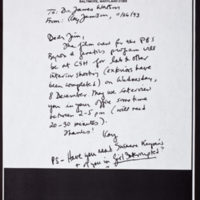 BALTIMORE, MARYLAND 21205
To: Dr. James Watson
From: Kay Jamison, 11/26/93
Dear Jim,
The film crew for the PBS
Byron & genetics program will
be at CSH for lab & other
interior shooting (exteriors have
been completed) on Wednesday,
8 December. May we interview
you in your office sometime
between 2-5 pm (will need
20-30 minutes).
Thanks!
Kay
PS - Have you read Susanna Kaysen's
you in "Girl Interrupted"